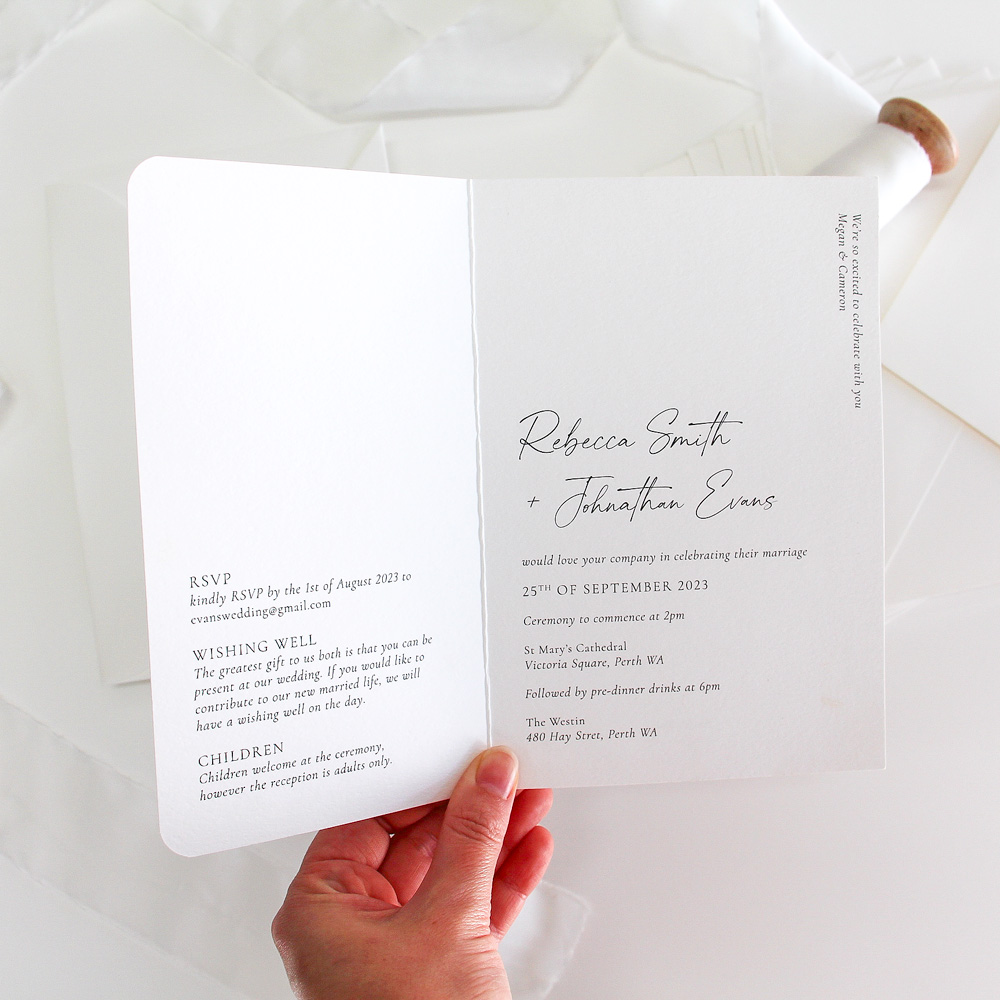 RSVP
kindly RSVP by the 1st of August 2023 to
evanswedding@gmail.com
WISHING WELL
The greatest gift to us both is that you can be
present at our wedding. If you would like to
contribute to our new married life, we will
have a wishing well on the day.
CHILDREN
Children welcome at the ceremony,
however the reception is adults only.
We're so excited to celebrate with you
Megan & Cameron
Rebecca Smith
+ Johnathan Evans
would love your company in celebrating their marriage
25TH OF SEPTEMBER 2023
Ceremony to commence at 2pm
St Mary's Cathedral
Victoria Square, Perth WA
Followed by pre-dinner drinks at 6pm
The Westin
480 Hay Stret, Perth WA